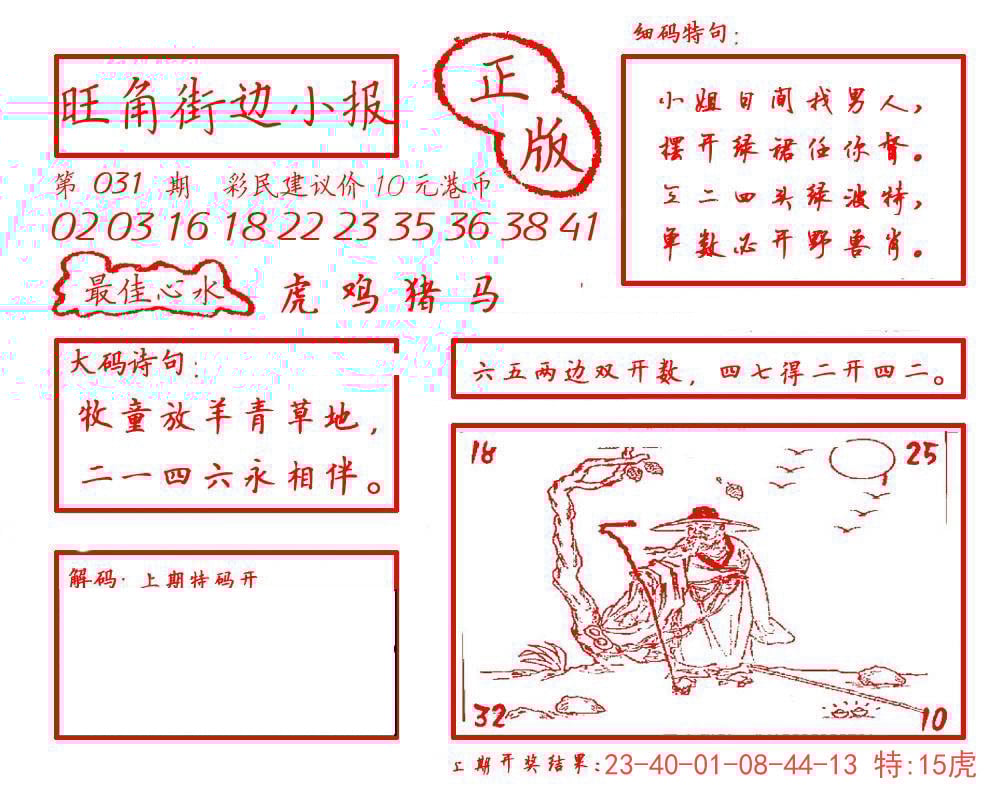 旺角街边小报
正版
第 031 期 彩民建议价 10 元港币
02 03 16 18 22 23 35 36 38 41
最佳心水
虎 鸡 猪 马
细码特句：
小姐日间找男人，
摆开绿裙任你督。
二四头绿波特，
单数必开野兽肖。
大码诗句：
牧童放羊青草地，
二一四六永相伴。
六五两边双开数，四七得二开四二。
解码·上期特码开
18
25
32
10
上期开奖结果：23-40-01-08-44-13 特:15虎